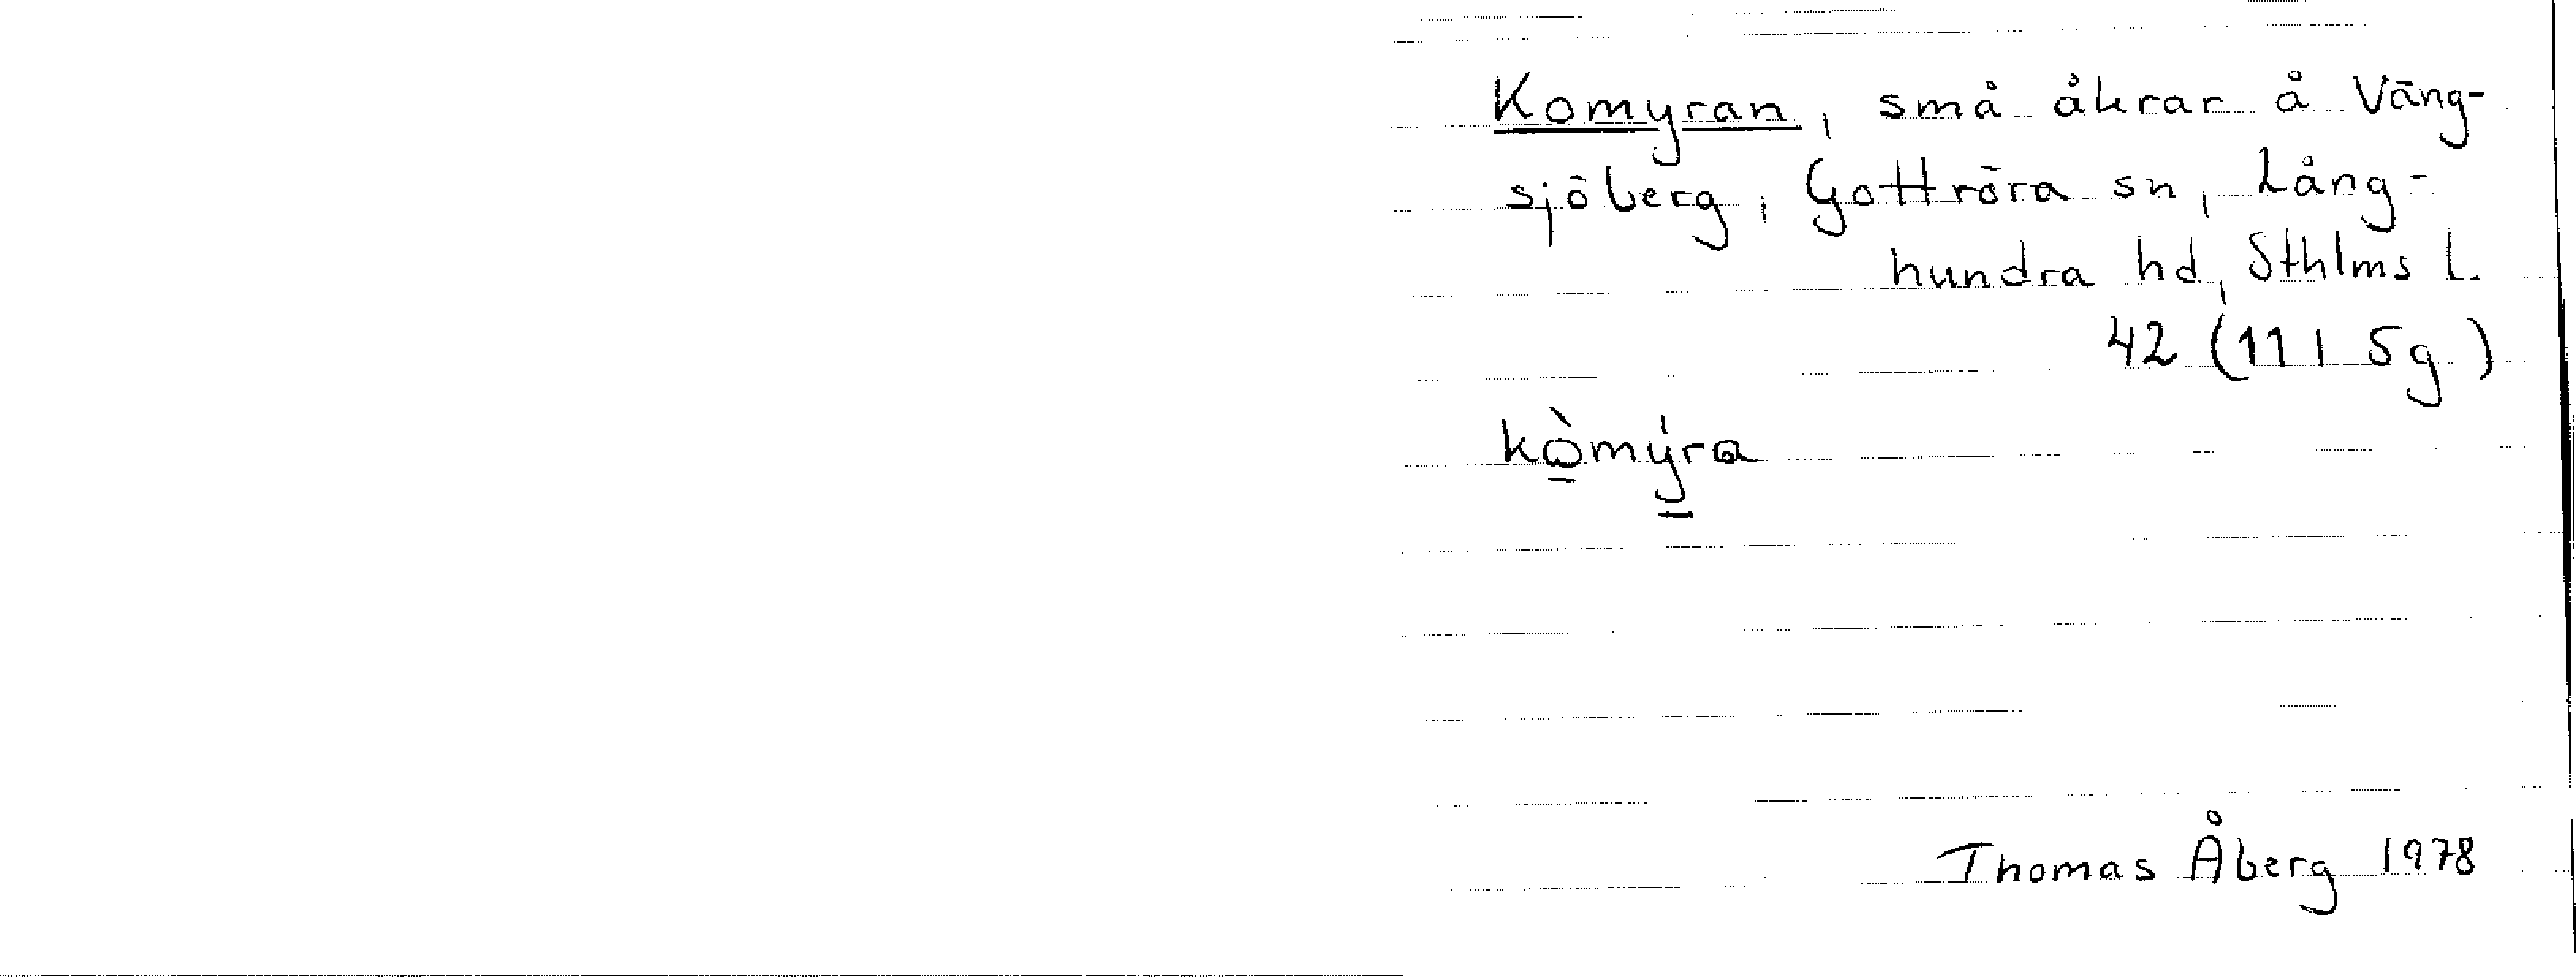 Komyran, små åkrar å Väng-
sjöberg, Gottröra sn, Lång-
hundra hd, Sthlms l.
42 (11 I 5g)
kòmýra
Thomas Åberg 1978